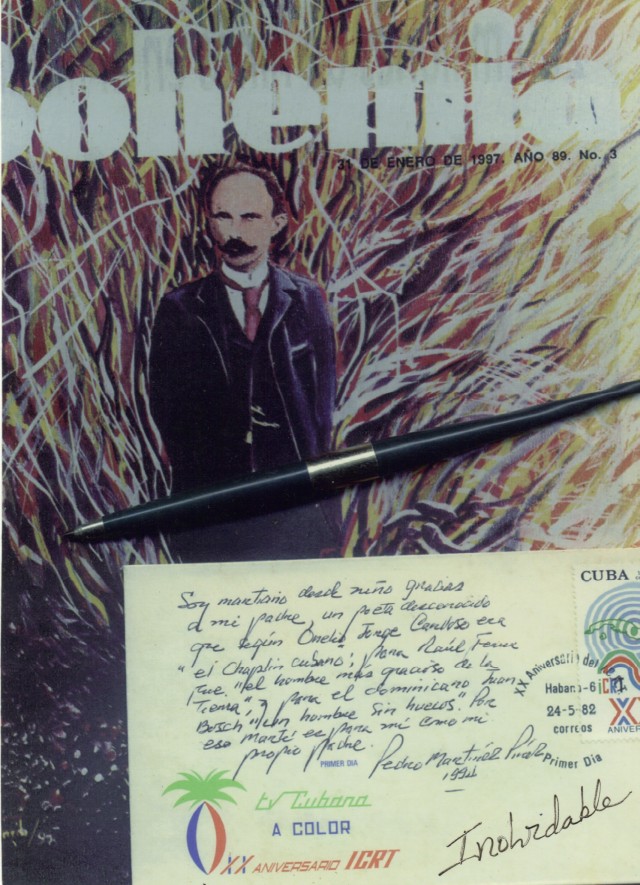 Bohemia
31 DE ENERO DE 1997. AÑO 89. No. 3
Soy martiano desde niño gracias
a mi padre, un poeta desconocido
que según Onelio Jorge Cardoso era
"el Chaplin cubano"; para Raúl Ferrer
fue "el hombre más gracioso de la
Tierra", y para el dominicano Juan
Bosch "un hombre sin huesos." Por
eso Martí es para mí como mi
propio padre.
Pedro Martínez Pírez
1994
PRIMER DIA
CUBA
XX Aniversario del
Habana-6
ICRT
24-5-82
correos
Primer Dia
XX
ANIVER
tv Cubana
A COLOR
XX ANIVERSARIO ICRT
Inolvidable